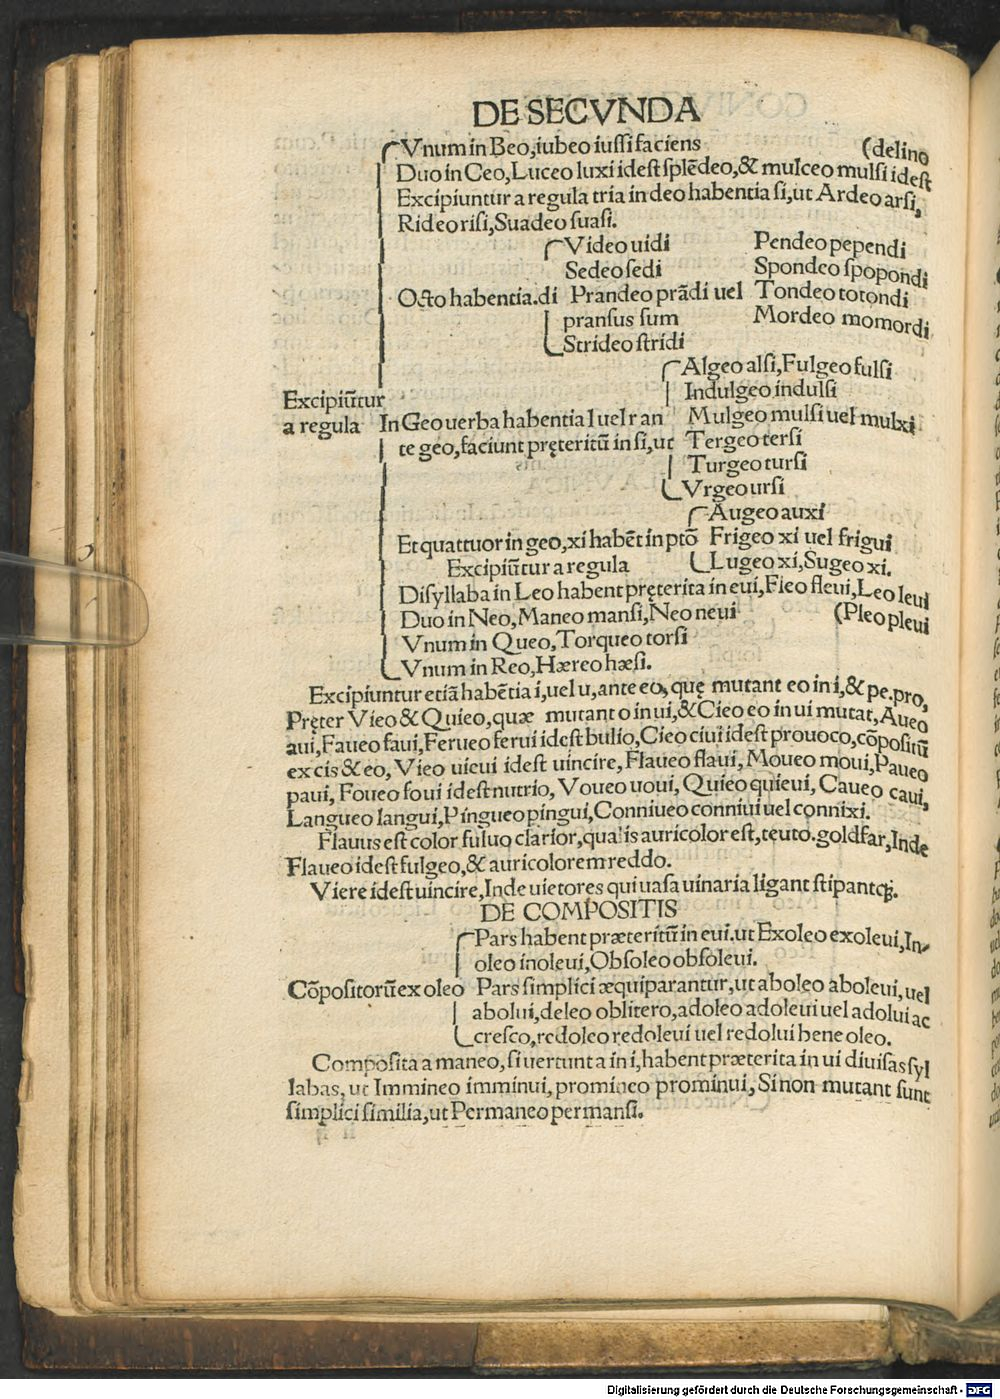 DE SECVNDA
Vnum in Beo,iubeo iussi faciens (delino
Duo in Ceo, Luceo luxi idest splẽdeo,& mulceo mulsi idest
Excipiuntur a regula tria in deo habentia si,ut Ardeo arsi,
Rideo risi, Suadeo suasi.
Video uidi Pendeo pependi
Sedeo sedi Spondeo spopondi
Octo habentia.di Prandeo prãdi uel Tondeo totondi
pransus sum Mordeo momordi
Strideo stridi
Algeo alsi,Fulgeo fulsi
Excipiũtur Indulgeo indulsi
a regula In Geo uerba habentia l uel r an Mulgeo mulsi uel mulxi
te geo,faciunt pręteritũ in si,ut Tergeo tersi
Turgeo tursi
Vrgeo ursi
Augeo auxi
Et quattuor in geo,xi habẽt in ptõ Frigeo xi uel frigui
Excipiũtur a regula Lugeo xi,Sugeo xi.
Disyllaba in Leo habent pręterita in eui,Fleo fleui,Leo leui
Duo in Neo, Maneo mansi,Neo neui (Pleo pleui
Vnum in Queo,Torqueo torsi
Vnum in Reo, Hæreo hæsi.
Excipiuntur etiã habẽtia i,uel u,ante eo, quę mutant eo in i,& pe.pro,
Pręter Vieo & Quieo,quæ mutant o in ui,& Cieo eo in ui mutat, Aueo
aui,Faueo faui,Ferueo ferui idest bulio,Cieo ciui idest prouoco,cõpositũ
ex cis & eo, Vieo uieui idest uincire, Flaueo flaui, Moueo moui,Paueo
paui, Foueo foui idest nutrio, Voueo uoui, Quieo quieui, Caueo caui,
Langueo langui,Pingueo pingui,Conniueo conniui uel connixi.
Flauus est color fuluo clarior,qualis auricolor est,teuto.goldfar,Inde
Flaueo idest fulgeo,& auricolorem reddo.
Viere idest uincire,Inde uietores qui uasa uinaria ligant stipantq;.
DE COMPOSITIS
Pars habent præteritũ in eui.ut Exoleo exoleui,In-
oleo inoleui,Obsoleo obsoleui.
Cõpositorũ ex oleo Pars simplici æquiparantur,ut aboleo aboleui,uel
abolui,deleo oblitero,adoleo adoleui uel adolui ac
cresco,redoleo redoleui uel redolui bene oleo.
Composita a maneo,si uertunt a in i,habent præterita in ui diuisas syl
labas, ut Immineo imminui, promineo prominui, Si non mutant sunt
simplici similia,ut Permaneo permansi.
Digitalisierung gefördert durch die Deutsche Forschungsgemeinschaft - DFG